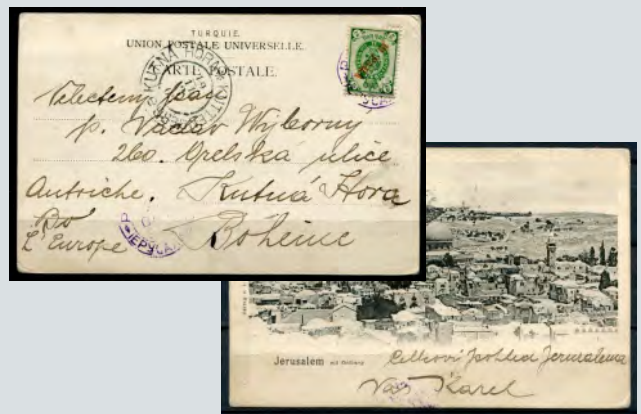 TURQUIE.
UNION POSTALE UNIVERSELLE.
CARTE POSTALE.
KUTNÁ HORA
Velectěný pan
p. Václav Wyborny
260. Orelská ulice
Antriche. Kutná Hora
L'Europe Bohême
ІЕРУСАЛ
Jerusalem
Celkoví pohled Jerusalema
Váš Karel